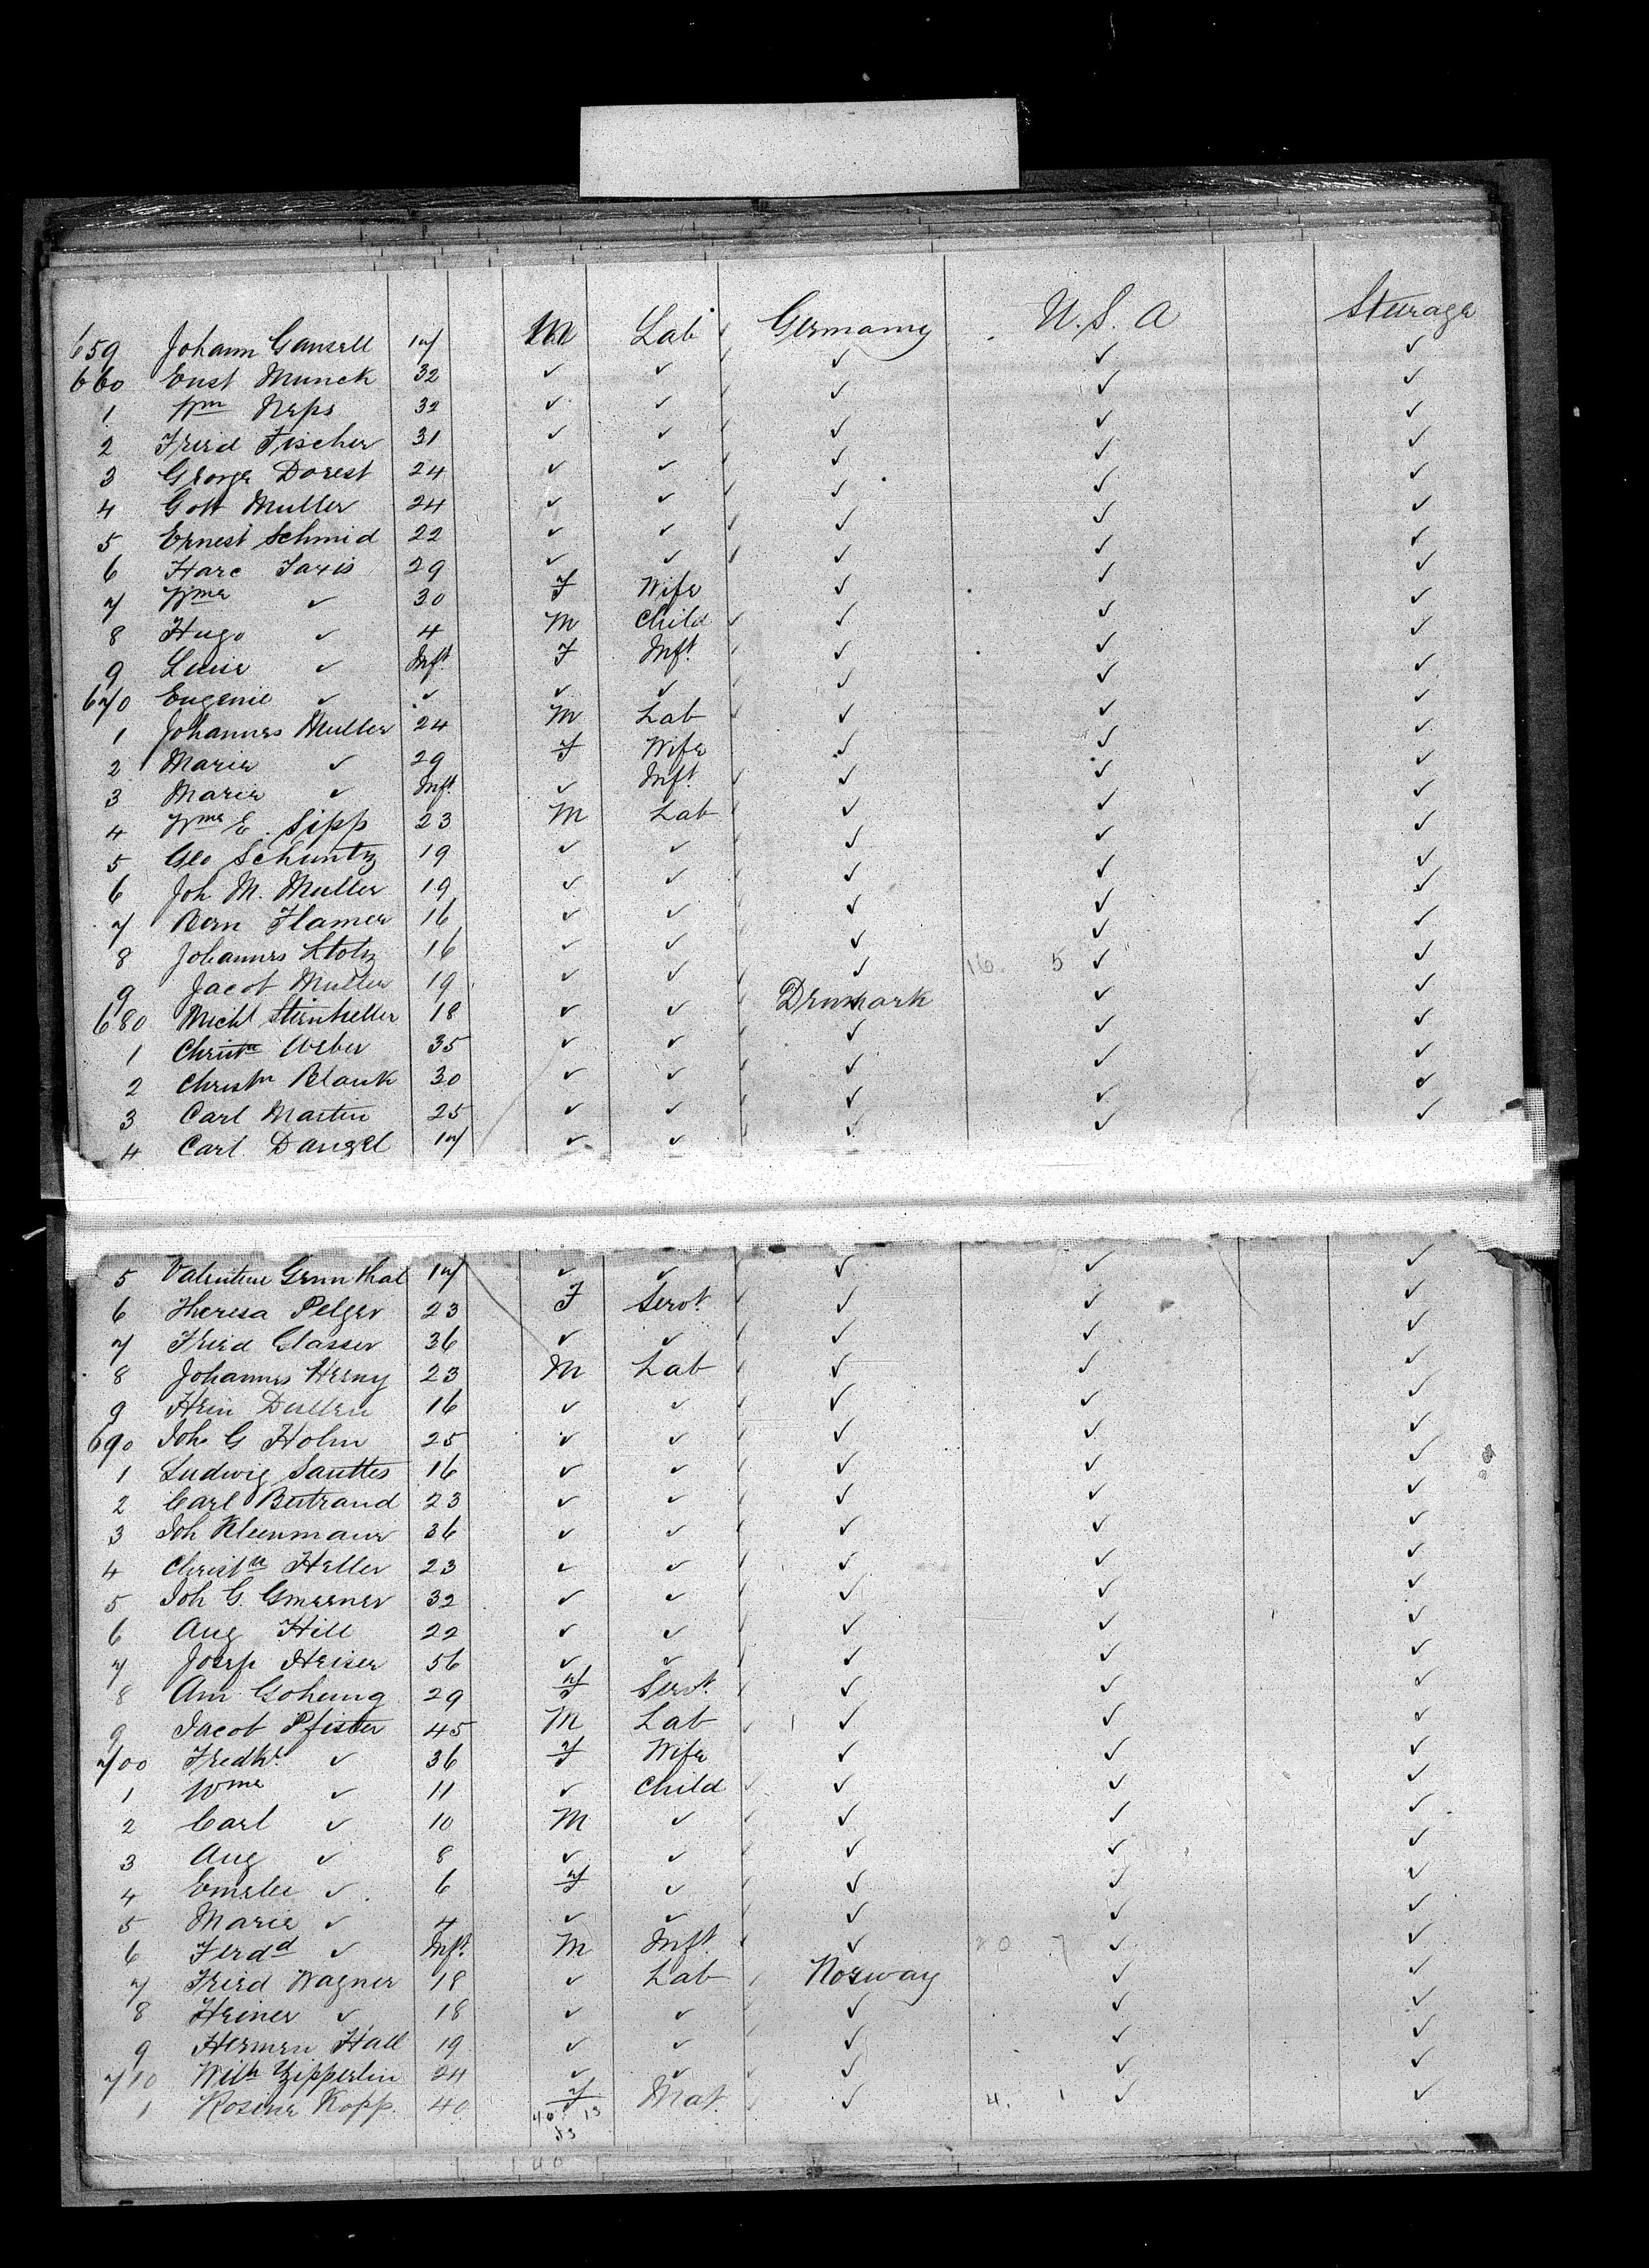 659 Johann Gansell 17 M Lab Germany U.S.A Steerage
660 Ernst Munck 32 ✓ ✓ ✓ ✓ ✓
1 Wm Neps 32 ✓ ✓ ✓ ✓ ✓
2 Fried Fischer 31 ✓ ✓ ✓ ✓ ✓
3 George Dorest 24 ✓ ✓ ✓ ✓ ✓
4 Gott Muller 24 ✓ ✓ ✓ ✓ ✓
5 Ernest Schmid 22 ✓ ✓ ✓ ✓ ✓
6 Harc Taxis 29 ✓ ✓ ✓ ✓ ✓
7 Wme ✓ 30 F Wife ✓ ✓ ✓
8 Hugo ✓ 4 M Child ✓ ✓ ✓
9 Luise ✓ Inft F Inft ✓ ✓ ✓
670 Eugenie ✓ ✓ ✓ ✓ ✓ ✓ ✓
1 Johannes Muller 24 M Lab ✓ ✓ ✓
2 Marie ✓ 29 F Wife ✓ ✓ ✓
3 Marie ✓ Inft ✓ Inft ✓ ✓ ✓
4 Wme E. Sipp 23 M Lab ✓ ✓ ✓
5 Geo Schuntz 19 ✓ ✓ ✓ ✓ ✓
6 Joh M. Muller 19 ✓ ✓ ✓ ✓ ✓
7 Bern Flamer 16 ✓ ✓ ✓ ✓ ✓
8 Johannes Stotz 16 ✓ ✓ ✓ ✓ ✓
9 Jacob Muller 19 ✓ ✓ ✓ 16. 5 ✓ ✓
680 Michl Steinheller 18 ✓ ✓ Denmark ✓ ✓
1 Christn Weber 35 ✓ ✓ ✓ ✓ ✓
2 Christn Blank 30 ✓ ✓ ✓ ✓ ✓
3 Carl Martin 25 ✓ ✓ ✓ ✓ ✓
4 Carl Dangel 17 ✓ ✓ ✓ ✓ ✓
5 Valentine Grunthal 17 ✓ ✓ ✓ ✓ ✓
6 Theresa Pelger 23 F Servt. ✓ ✓ ✓
7 Fried Glasser 36 ✓ ✓ ✓ ✓ ✓
8 Johannes Herny 23 M Lab ✓ ✓ ✓
9 Hein Dullen 16 ✓ ✓ ✓ ✓ ✓
690 Joh G Holm 25 ✓ ✓ ✓ ✓ ✓
1 Ludwig Sauttes 16 ✓ ✓ ✓ ✓ ✓
2 Carl Bertrand 23 ✓ ✓ ✓ ✓ ✓
3 Joh Kleenmaur 36 ✓ ✓ ✓ ✓ ✓
4 Christn Heller 23 ✓ ✓ ✓ ✓ ✓
5 Joh G. Gmerner 32 ✓ ✓ ✓ ✓ ✓
6 Aug Hill 22 ✓ ✓ ✓ ✓ ✓
7 Josep Heiser 56 ✓ ✓ ✓ ✓ ✓
8 Am Goheung 29 F Servt. ✓ ✓ ✓
9 Jacob Pfister 45 M Lab ✓ ✓ ✓
700 Fredke ✓ 36 F Wife ✓ ✓ ✓
1 Wme ✓ 11 ✓ Child ✓ ✓ ✓
2 Carl ✓ 10 M ✓ ✓ ✓ ✓
3 Aug ✓ 8 ✓ ✓ ✓ ✓ ✓
4 Emelie ✓ 6 F ✓ ✓ ✓ ✓
5 Marie ✓ 4 ✓ ✓ ✓ ✓ ✓
6 Ferdd ✓ Inft. M Inft. ✓ 20 7 ✓ ✓
7 Fried Wagner 18 ✓ Lab Norway ✓ ✓
8 Heiner ✓ 18 ✓ ✓ ✓ ✓ ✓
9 Hermen Hall 19 ✓ ✓ ✓ ✓ ✓
710 Wilh Zipperlin 24 ✓ ✓ ✓ ✓ ✓
1 Rosine Kopp. 40 F Mat. ✓ 4. 1 ✓ ✓
40 13
53
40